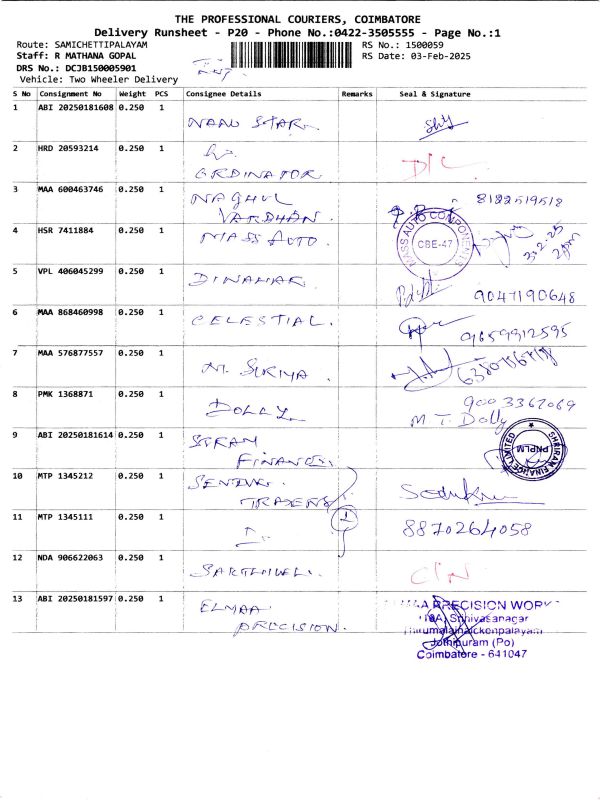 THE PROFESSIONAL COURIERS, COIMBATORE
Delivery Runsheet - P20 - Phone No.:0422-3505555 - Page No.:1
Route: SAMICHETTIPALAYAM
RS No.: 1500059
Staff: R MATHANA GOPAL
RS Date: 03-Feb-2025
DRS No.: DCJB150005901
Vehicle: Two Wheeler Delivery
S No Consignment No Weight PCS Consignee Details Remarks Seal & Signature
1 ABI 20250181608 0.250 1 NAAU STAR.
2 HRD 20593214 0.250 1 D/C
GRDINATOR
3 MAA 600463746 0.250 1 NAGHUL 8122519512
VARDHAN.
4 HSR 7411884 0.250 1 MASS AUTO. MASS AUTO COMPONENTS CBE-47 3.2.25
5 VPL 406045299 0.250 1 DINAKAR 9047190648
6 MAA 868460998 0.250 1 CELESTIAL. 9659912595
7 MAA 576877557 0.250 1 M. SURIYA.
8 PMK 1368871 0.250 1 DOLLY 9003367069
M T. Dolly
9 ABI 20250181614 0.250 1 SHRIRAM FINANCE LIMITED PNPLM
FINANCE.
10 MTP 1345212 0.250 1
TRADERS
11 MTP 1345111 0.250 1 1 8870264058
12 NDA 906622063 0.250 1 SAKTHIVEL. C/N
13 ABI 20250181597 0.250 1 ELMAA PRECISION WORK
PRECISION. Srinivasanagar
Jothipuram (Po)
Coimbatore - 641047